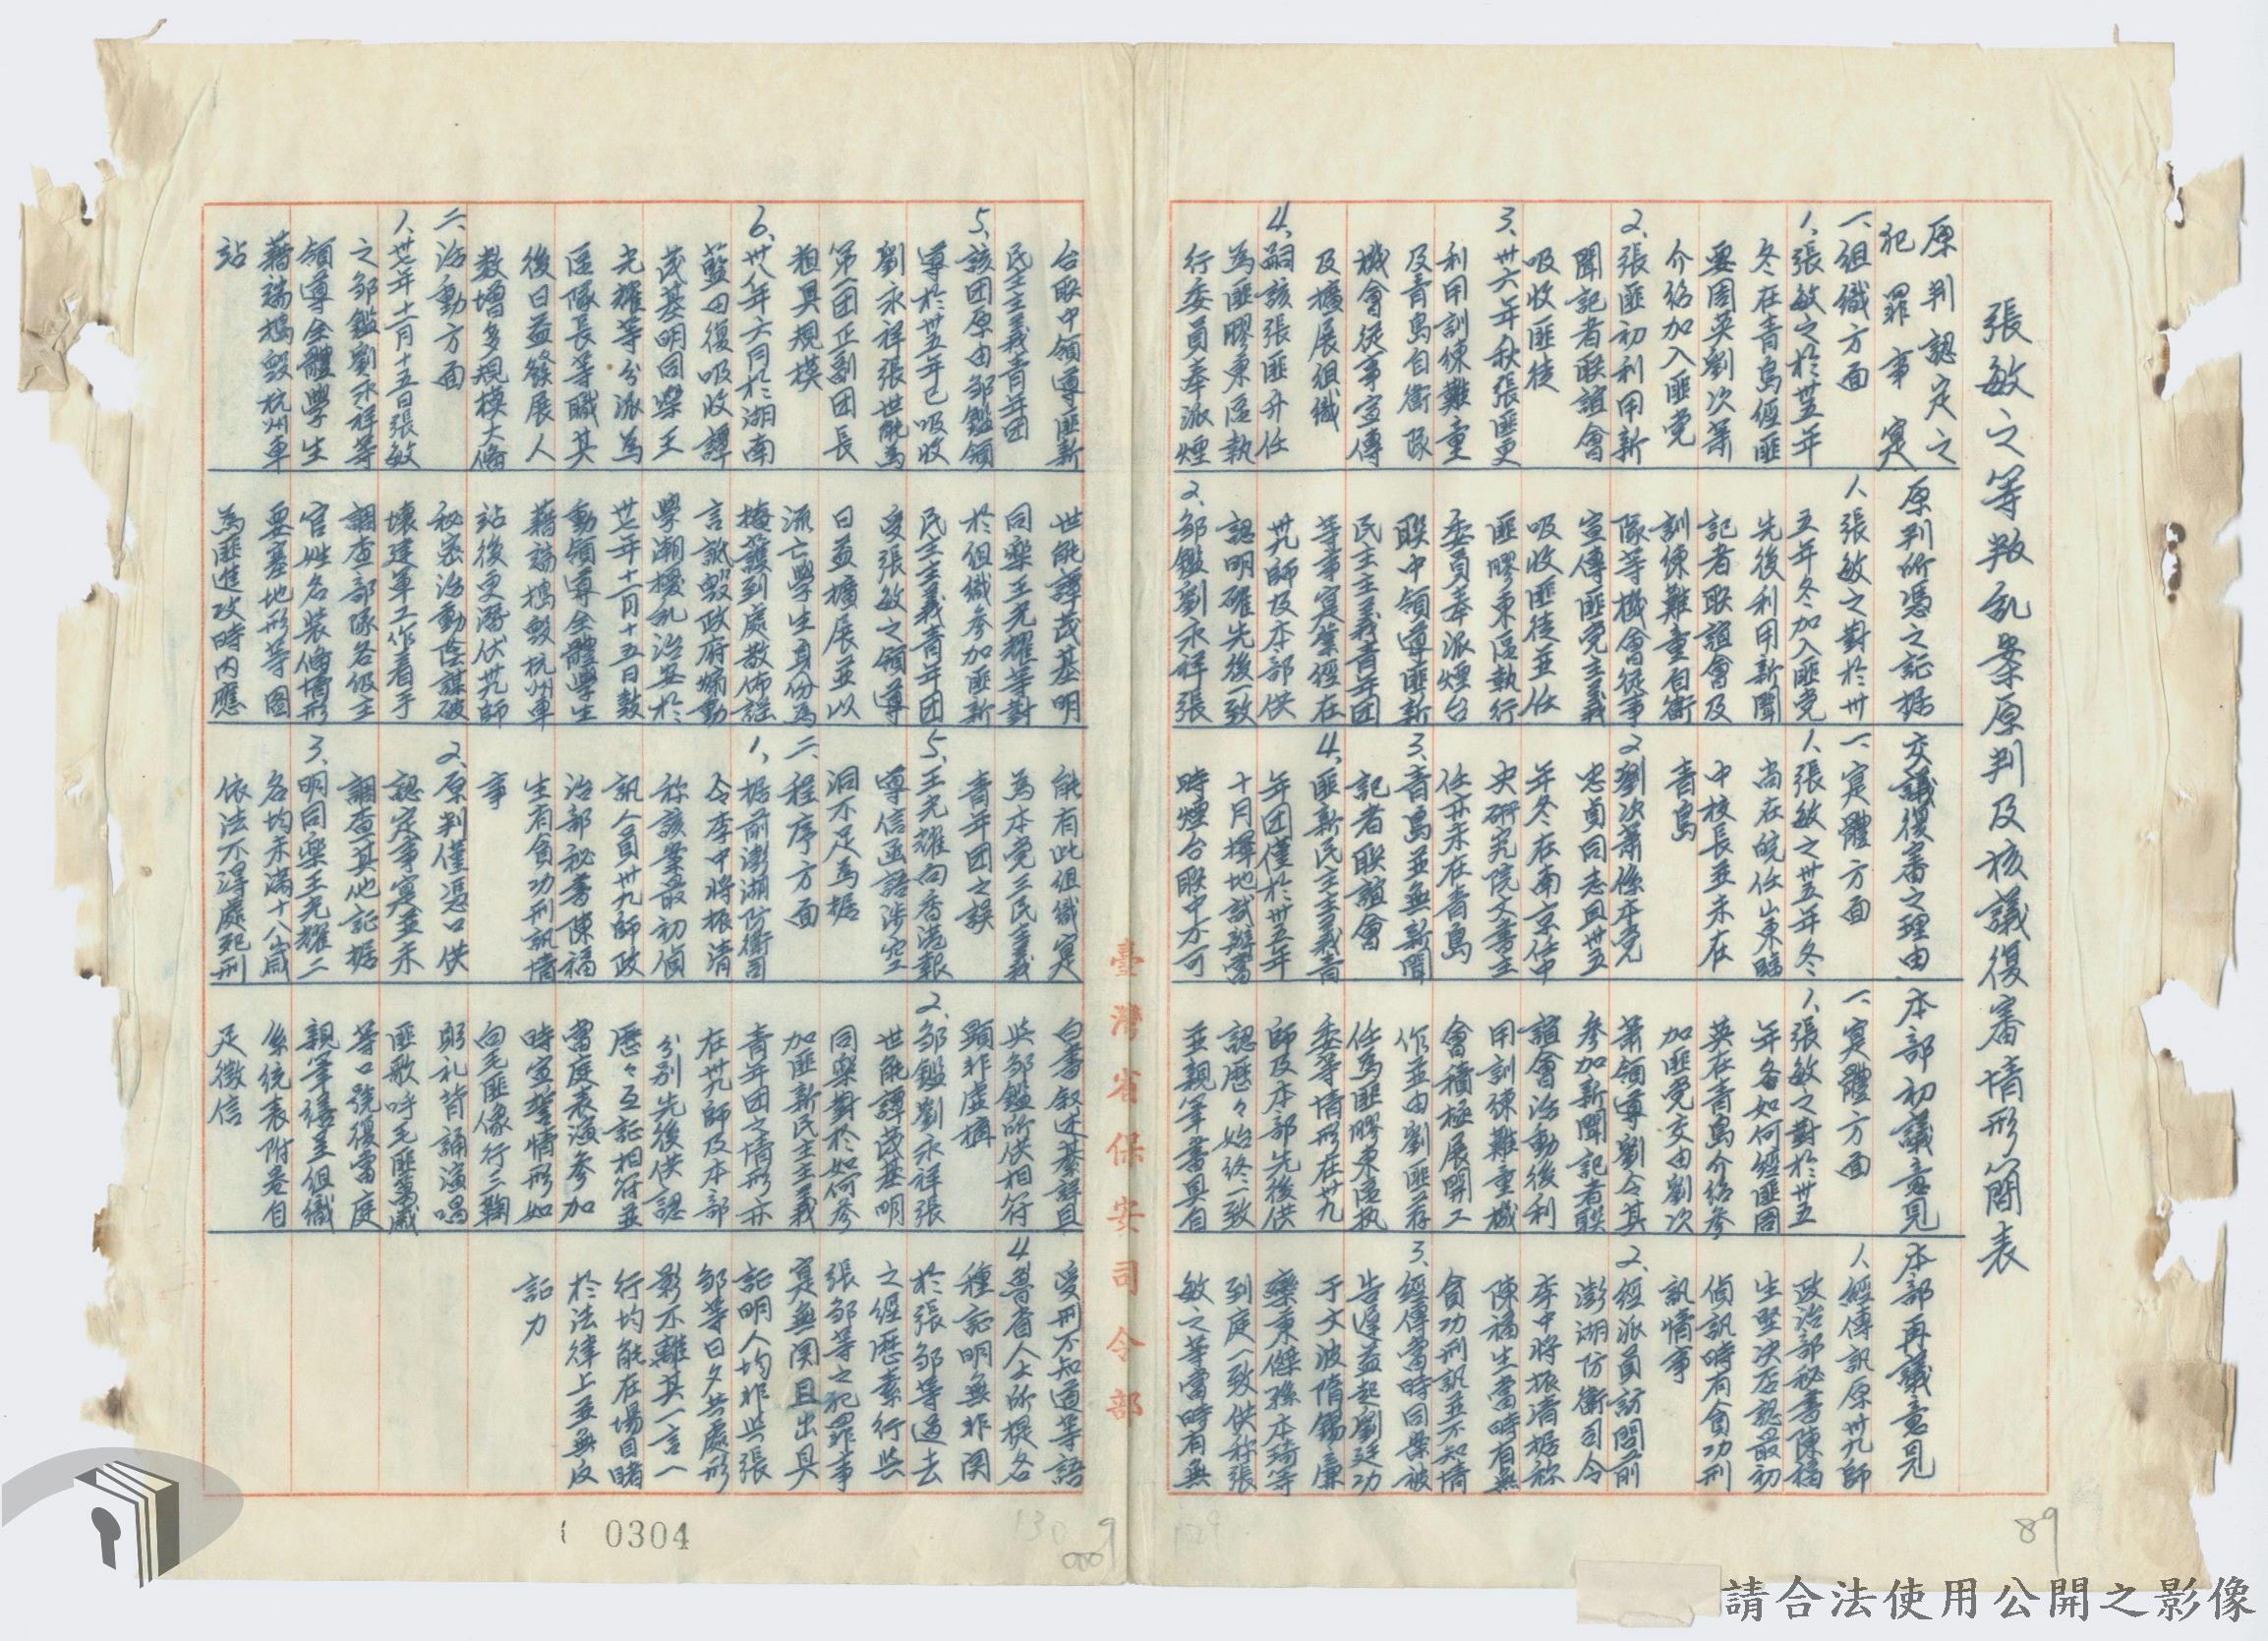 張敏之等叛乱案原判及核議復審情形簡表
原判認定之
犯罪事寔
一、組織方面
1、張敏之於卅五年
冬在青島經匪
要周英劉次萧
介紹加入匪党
2、張匪初利用新
聞記者聯誼會
吸收匪徒
3、卅六年秋張匪更
利用訓練難童
及青島自衛隊
機會從事宣傳
及擴展组織
4、嗣該張匪升任
為匪膠東區執
行委員奉派煙
原判所憑之証據
1、張敏之對於卅
五年冬加入匪党
先後利用新聞
記者联誼會及
訓練難童自衛
隊等機會從事
宣傳匪党主義
吸收匪徒並任
匪膠東區執行
委員奉派煙台
联中領導匪新
民主主義青年团
等事寔業經在
卅九師及本部供
認明確先後一致
2、邹鑑劉永祥張
交議復審之理由
一、寔體方面
1、張敏之卅五年冬
尚在皖任山東臨
中校長並未在
青島
2、劉次萧係本党
忠貞同志且卅五
年冬在南京任中
央研究院文書主
任亦未在青島
3、青島並無新聞
記者联誼會
4、匪新民主主義青
年团僅於卅五年
十月擇地試辦當
時煙台联中不可
本部初議意見
一、寔體方面
1、張敏之對於卅五
年各如何經匪周
英在青島介紹參
加匪党交由劉次
萧領導劉令其
參加新聞記者联
誼會活動後利
用訓練難童機
會積極展開工
作並由劉匪荐
任為匪膠東區执
委等情形在卅九
師及本部先後供
認歷々始終一致
並親筆書具自
本部再議意見
1、經傳訊原卅九師
政治部秘書陳福
生堅决否認最初
偵訊時有貪功刑
訊情事
2、經派員訪問前
澎湖防衛司令
李中將振清据称
陳福生當時有無
貪功刑訊並不知情
3、經傳當時同案被
告遲益起劉廷功
于文波隋錫廉
欒東傑孫本琦等
到庭一致供称張
敏之等當時有無
台联中領導匪新
民主主義青年团
5、該团原由邹鑑領
導於卅五年已吸收
劉永祥張世能為
第一团正副团長
粗具規模
6、卅八年六月於湖南
藍田復吸收譚
茂基明同樂王
光耀等分派為
區隊長等職其
後日益發展人
数增多規模大俻
二、活動方面
1、卅七年十一月十五日張敏
之邹鑑劉永祥等
領導全體學生
藉端搗毀杭州車
站
世能譚茂基明
同樂王光耀等對
於组織參加匪新
民主主義青年团
受張敏之領導
日益擴展並以
流亡學生身份為
掩護到處散佈謠
言詆毀政府煽動
學潮擾乱治安於
卅七年十一月十五日数
動領導全體學生
藉端搗毀杭州車
站後更潛伏卅九師
秘密活動陰謀破
壞建軍工作着手
調查部隊各级主
官姓名装俻情形
要塞地形等圖
為匪進攻時内應
能有此组織寔
為本党三民主義
青年团之誤
5、王光耀向香港報
導信函語涉空
洞不足為据
二、程序方面
1、据前澎湖防衛司
令李中將振清
称該案最初偵
訊人員卅九師政
治部秘書陳福
生有貪功刑訊情
事
2、原判僅憑口供
認定事寔並未
調查其他証据
3、明同樂王光耀二
名均未滿十八歲
依法不得處死刑
白書叙述綦詳且
與邹鑑所供相符
顯非虚搆
2、邹鑑劉永祥張
世能譚茂基明
同樂對於如何參
加匪新民主主義
青年团之情形亦
在卅九師及本部
分别先後供認
歷々互証相符並
當庭表演參加
時宣誓情形如
向毛匪像行三鞠
躬礼背誦演唱
匪歌呼毛匪萬歲
等口號復當庭
親筆繕呈组織
係统表附卷自
足徵信
受刑不知道等語
4、魯省人士所提各
種証明無非関
於張邹等過去
之經歷素行與
張邹等之犯罪事
寔無関且出具
証明人均非與張
邹等日夕共處形
影不離其一言一
行均能在場目睹
於法律上並無反
証力
臺灣省保安司令部
0304
89
請合法使用公開之影像